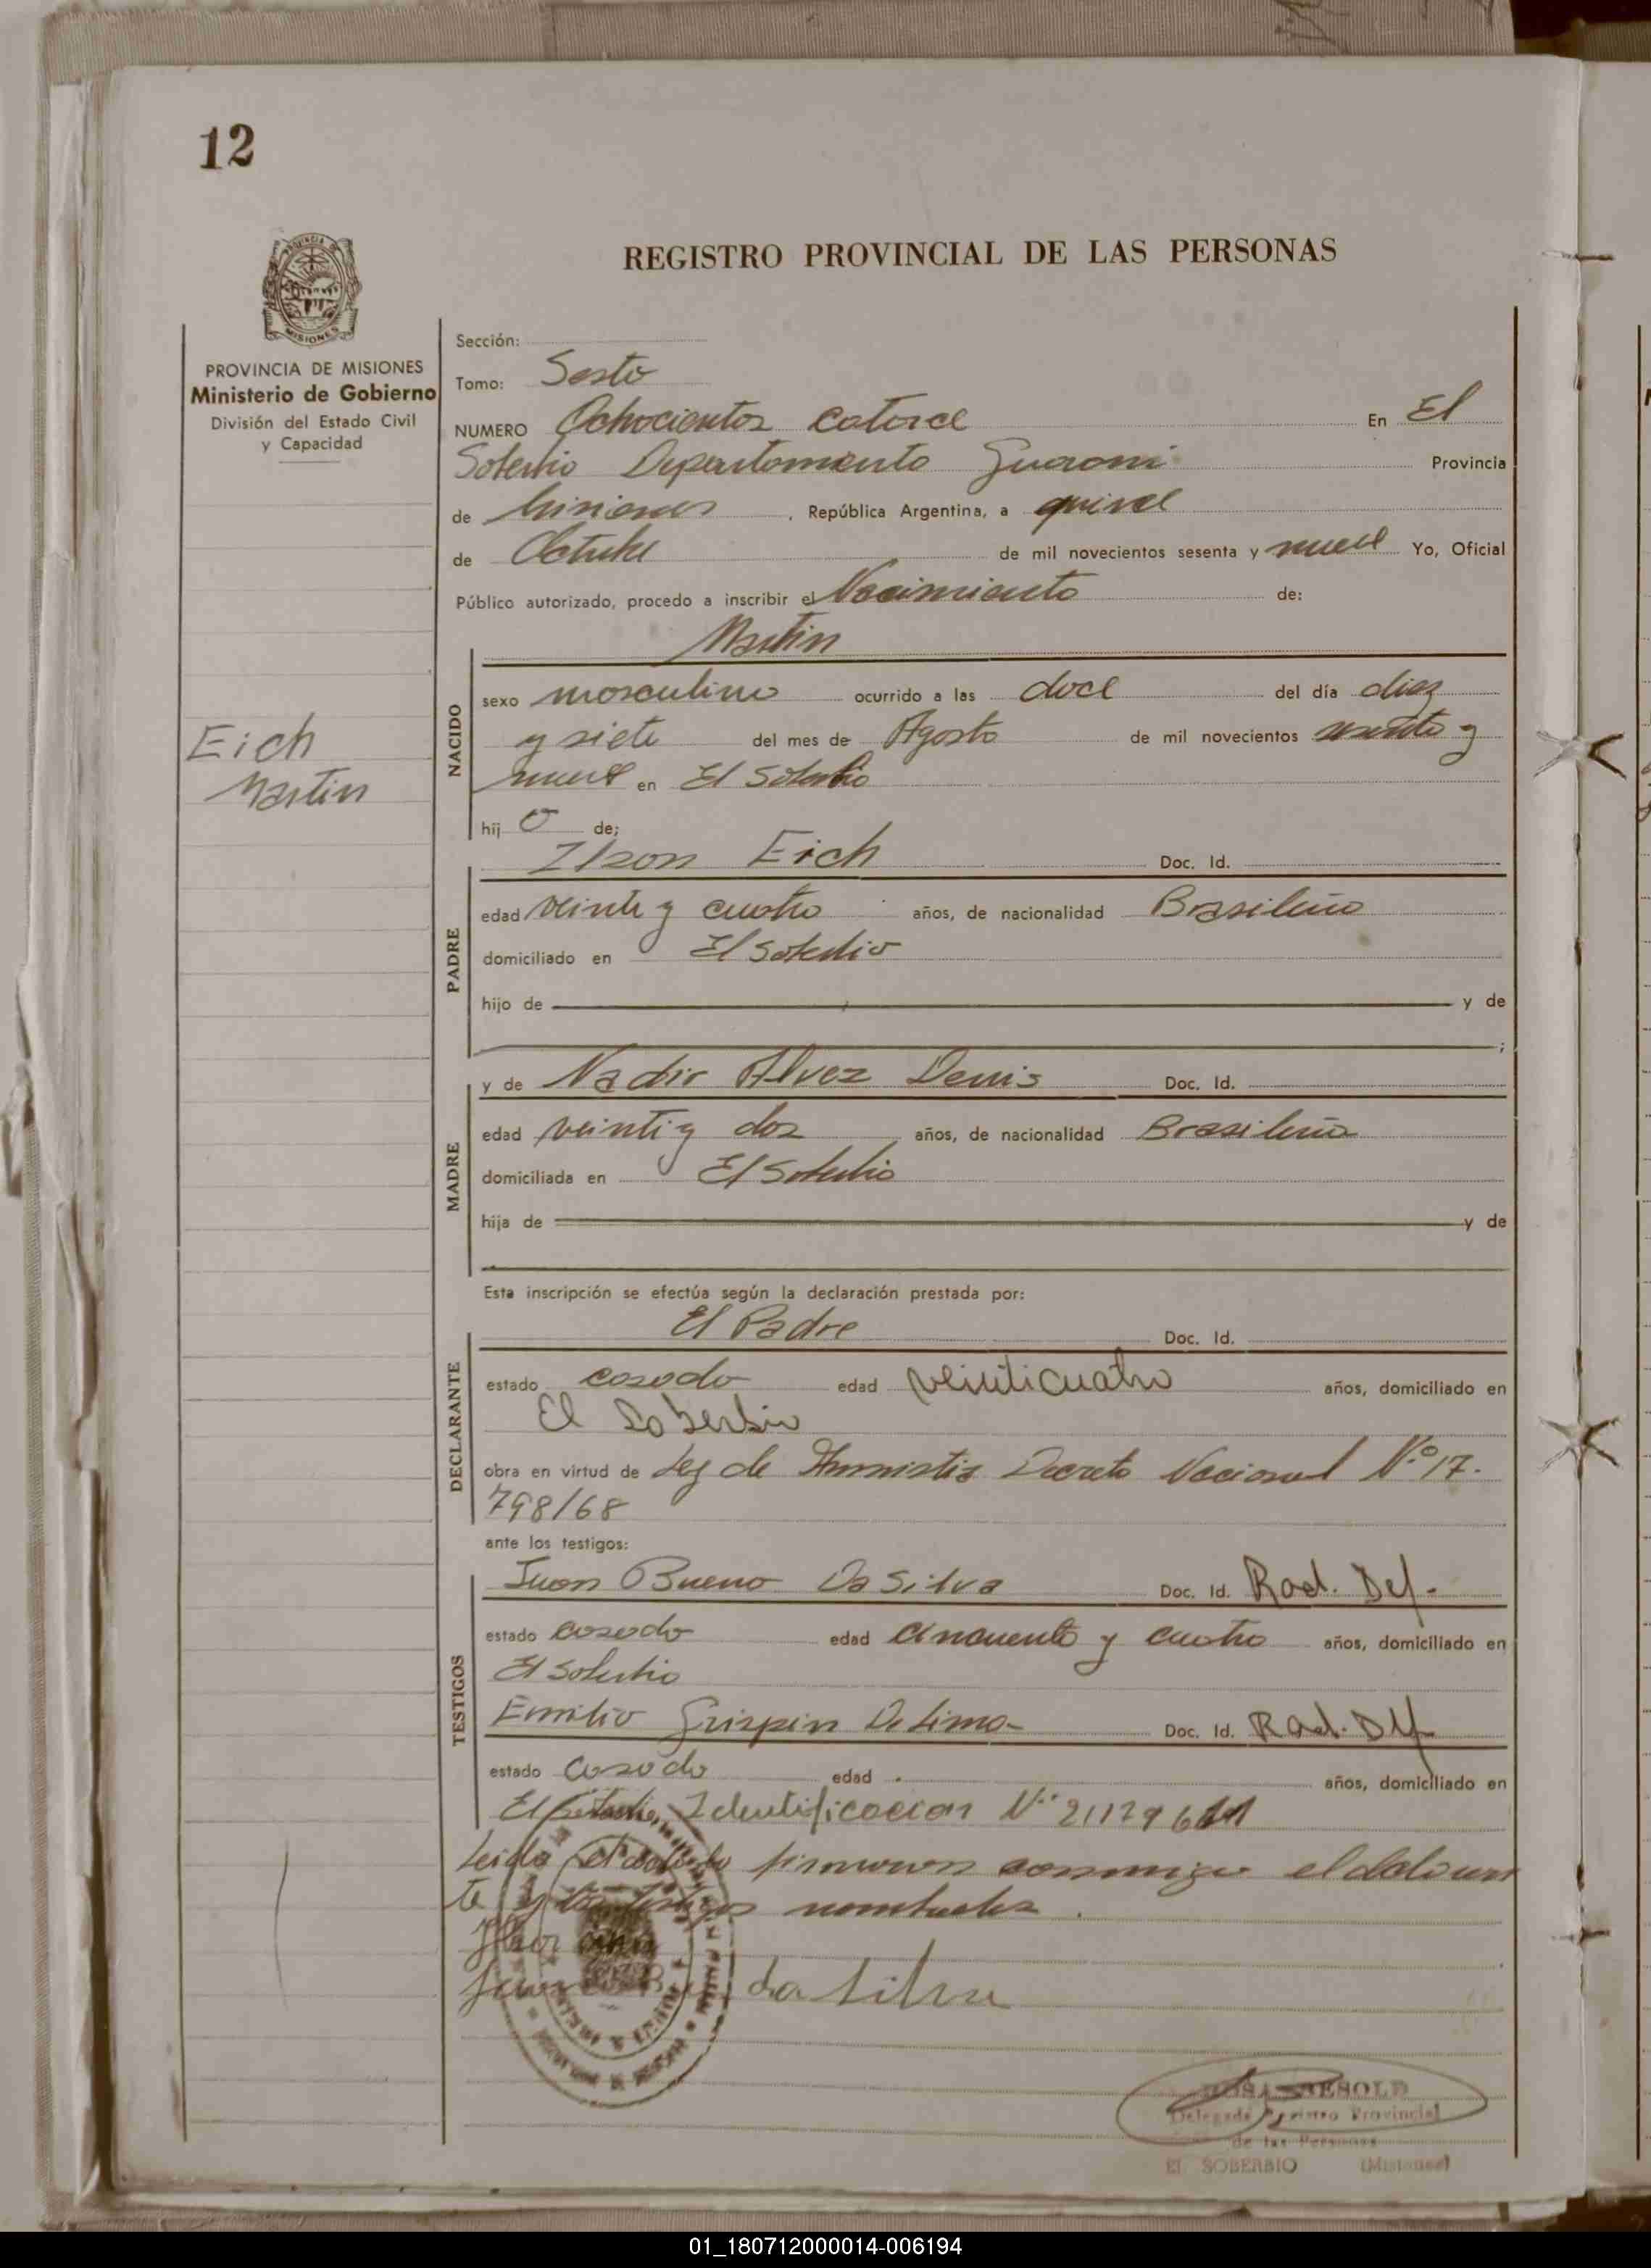 12
REGISTRO PROVINCIAL DE LAS PERSONAS
MISIONES
PROVINCIA DE MISIONES
Ministerio de Gobierno
División del Estado Civil
y Capacidad
Eich
Martin
Sección:
Tomo: Sesto
NUMERO Ochocientos catorce En El
Soberbio Departamento Guarani Provincia
de Misiones , República Argentina, a quince
de Octubre de mil novecientos sesenta y nueve Yo, Oficial
Público autorizado, procedo a inscribir el Nacimiento de:
Martin
NACIDO
sexo masculino ocurrido a las doce del día diez
y siete del mes de Agosto de mil novecientos sesenta y
nueve en El Soberbio
hij o de;
Ilson Eich Doc. Id.
PADRE
edad veinte y cuatro años, de nacionalidad Brasileño
domiciliado en El Soberbio
hijo de y de
;
MADRE
y de Nadir Alvez Denis Doc. Id.
edad veinti y dos años, de nacionalidad Brasileña
domiciliada en El Soberbio
hija de y de
Esta inscripción se efectúa según la declaración prestada por:
El Padre Doc. Id.
DECLARANTE
estado casado edad veinticuatro años, domiciliado en
El Soberbio
obra en virtud de Ley de Amnistia Decreto Nacional Nº 17.
798/68
ante los testigos:
TESTIGOS
Juan Bueno Da Silva Doc. Id. Rad. Def.
estado casado edad cincuenta y cuatro años, domiciliado en
El Soberbio
Emilio Grispin De Lima Doc. Id. Rad. Def
estado casado edad años, domiciliado en
El Soberbio, Identificacion Nº
Leida el acta firmaron conmigo el declaran
te y los testigos nombrados.
da Silva
ROSA BESOLD
Delegada Registro Provincial
de las Personas
EL SOBERBIO (Misiones)
01_180712000014-006194